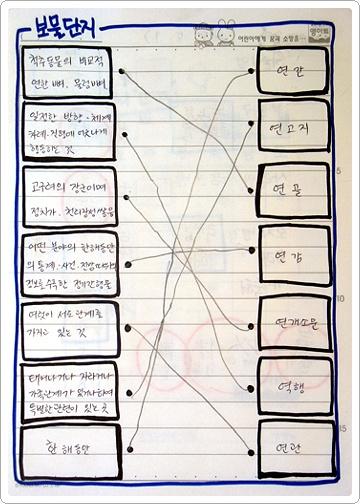 보물단지
어린이에게 꿈과 소망을...
척추동물의 비교적
연한 뼈, 물렁뼈
연간
일정한 방향·체계
차례·진행에 어긋나게
행동하는 것
연고지
5
고구려의 장군이며
정치가. 천리장성 쌓음
연골
어떤 분야의 한해동안
의 통계·사건·전망
정보 수록한 정기간행물
연감
10
여럿이 서로 관계를
가지고 있는 것
연개소문
태어나거나 자라거나
가족관계가 있거나하여
특별한 관련이 있는 곳
역행
15
한 해 동안
연관